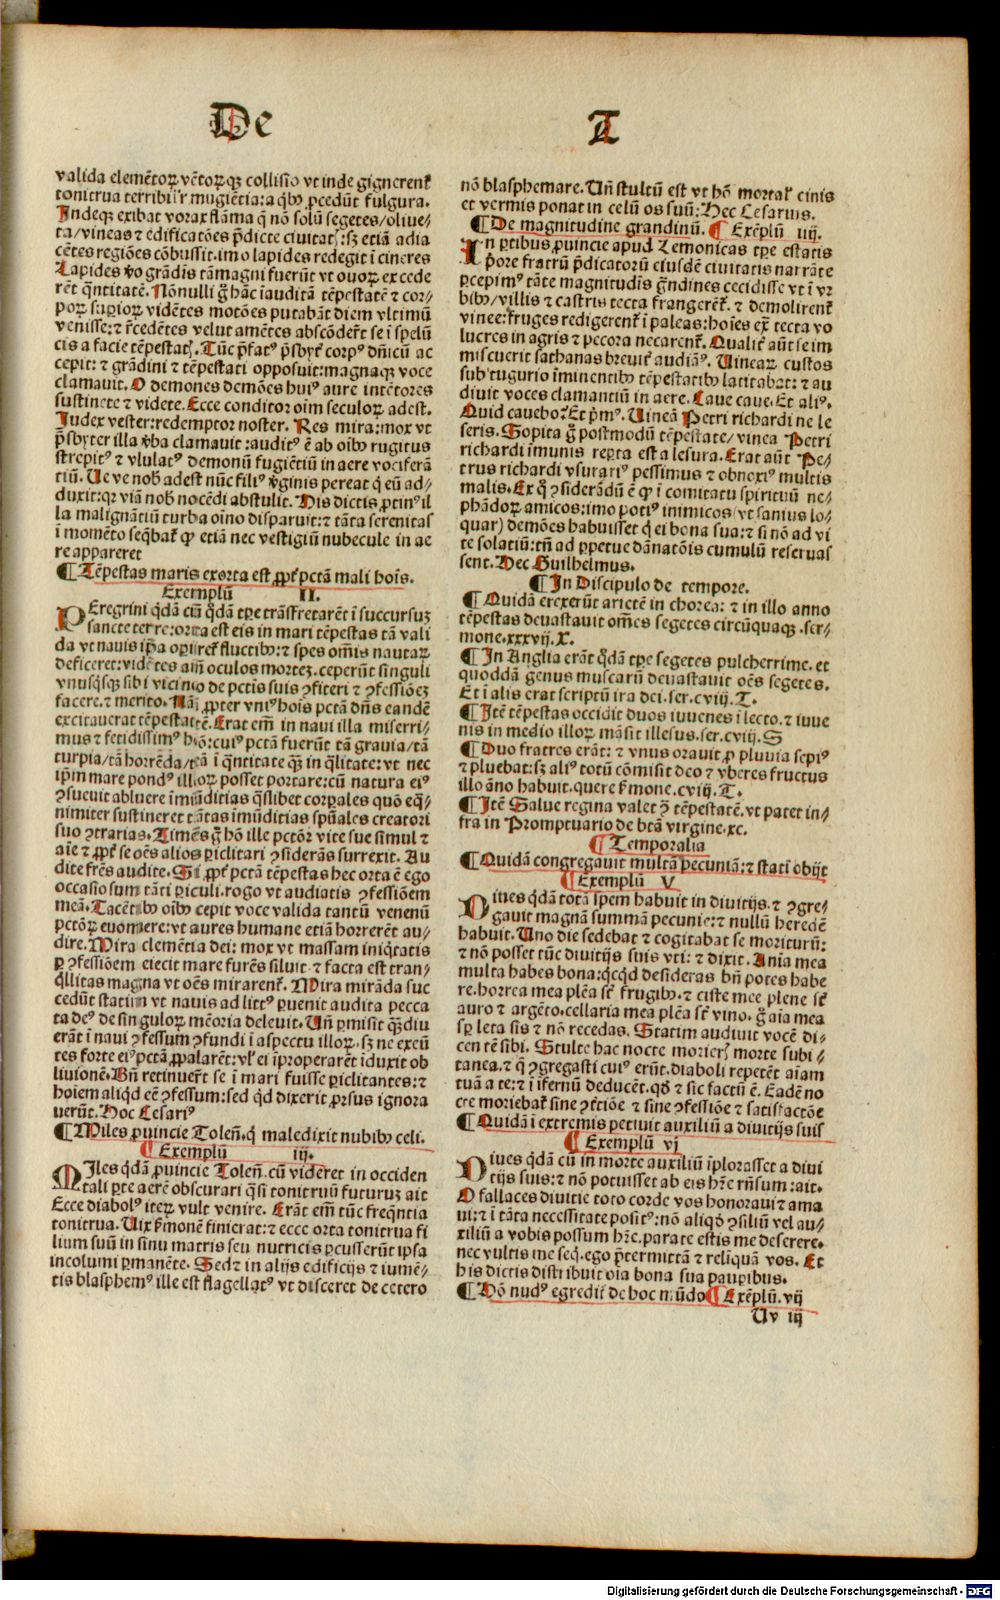 De
T
valida elemẽtoꝝ vẽtoꝝqꝫ collisio vt inde gignerenť
tonitrua terribiľr mugiẽtia: a qbꝰ ꝓcedũt fulgura.
Indeqꝫ exibat vorax flãma q̃ nõ solũ segetes/oliue-
ta/vineas ⁊ edificatões p̃dicte ciuitať: sꝫ etiã adia
cẽtes regiões cõbussit. imo lapides redegit ĩ cineres
Lapides v̾o grãdĩs tãmagni fuerũt vt ouoꝝ excede
rẽt q̃ntitatẽ. Nõnulli g̃ hãc ĩauditã tẽpestatẽ ⁊ cor-
poꝝ supioꝝ vidẽtes motões putabãt diem vltimũ
venisse: ⁊ r̃cedẽtes velut amẽtes abscõdert̃ se ĩ spelũ
cis a facie tẽpestať. Tũc p̃fatꝰ p̃sbyť corpꝰ dñicũ ac
cepit: ⁊ grãdini ⁊ tẽpestati opposuit: magnaqꝫ voce
clamauit. O demones demões huiꝰ aure intẽtores
sustinete ⁊ videte. Ecce conditor oĩm seculoꝝ adest.
Iudex vester: redemptor noster. Res mira: mox vt
p̃sbyter illa v̾ba clamauit: auditꝰ ẽ ab oĩbꝰ rugitus
strepitꝰ ⁊ vlulatꝰ demonũ fugiẽtiũ in aere vociferã
tiũ. Ue ve nob̃ adest nũc filiꝰ v̾ginis pereat q̃ eũ ad-
duxit: qꝛ viã nob̃ nocẽdi abstulit. His dictis ꝓtinꝰ il
la malignãtiũ turba oĩno disparuit: ⁊ tãta serenitas
ĩ momẽto seq̃bať ꝙ etiã nec vestigiũ nubecule in ae
re appareret
¶Tẽpestas maris exorta est ꝓpť pctã mali hoĩs.
Exemplũ II.
PEregrini q̃dã cũ q̃dã tꝑe trãsfretarẽt ĩ succursuꝫ
sancte terre: orta est eis in mari tẽpestas tã vali
da vt nauis ip̃a opiret̃ fluctibꝰ: ⁊ spes om̃is nautaꝝ
deficeret: vidẽtes aũt oculos morteꝫ. ceperũt singuli
vnusqsqꝫ sibi vicinio de pctis suis ꝯfiteri ⁊ ꝯfessiõeꝫ
facere. ⁊ merito. Nã ꝓpter vniꝰ hoĩs pctã dñs eandẽ
excitauerat tẽpestatẽ. Erat em̃ in naui illa miserri-
mus ⁊ fetidissimꝰ hõ: cuiꝰ pctã fuerũt tã grauia/tã
turpia/tã horrẽda/tã ĩ q̃ntitate qꝫ in q̃litate: vt nec
ip̃m mare pondꝰ illoꝝ posset portare: cũ natura eiꝰ
ꝯsueuit abluere ĩmũditias q̃slibet corꝑales quõ eq̃-
nimiter sustineret tãtas imũditias spũales creatori
suo ꝯtrarias. Timẽs g̃ hõ ille pctõꝝ vite sue simul ⁊
aĩe ⁊ ꝓpť se oẽs alios ꝑiclitari ꝯsiderãs surrexit. Au
dite fr̃es audite. Si ꝓpť pctã tẽpestas hec orta ẽ ego
occasio sum tãti ꝑiculi. rogo vt audiatis ꝯfessiõem
meã. Tacẽtibꝰ oĩbꝰ cepit voce valida tantũ venenũ
pctõꝝ euomere: vt aures humane etiã horrerẽt au-
dire. Mira clemẽtia dei: mox vt massam iniq̃tatis
ꝑ ꝯfessiõem eiecit mare furẽs siluit ⁊ facta est tran-
q̃llitas magna vt oẽs mirarenť. Mira mirãda suc
cedũt statim vt nauis ad littꝰ ꝑuenit audita pecca
ta deꝰ de singuloꝝ mẽoria deleuit. Uñ ꝑmisit q̃ꝫdiu
erãt ĩ naui ꝯfessum ꝯfundi ĩ aspectu illoꝝ. sꝫ ne exeũ
tes forte eiꝰ pctã ꝓpalarẽt: vľ ei ĩproperarẽt ĩduxit ob
liuionẽ. Bñ retinuert̃ se ĩ mari fuisse ꝑiclitantes: ⁊
hoĩem aliq̃d eẽ ꝯfessum: sed q̃d dixerit ꝓrsus ignora
uerũt. Hoc Cesariꝰ
¶Miles ꝓuincie Toleñ. q̃ maledixit nubibꝰ celi.
¶Exemplũ iij.
MIles q̃dã ꝓuincie Toleñ. cũ videret in occiden
tali ꝑte aerẽ obscurari q̃si tonitruũ futuruꝫ ait
Ecce diabolꝰ iteꝝ vult venire. Erãt em̃ tũc freq̃ntia
tonitrua. Uix ẜmonẽ finierat: ⁊ ecce orta tonitrua fi
lium suũ in sinu matris seu nutricis ꝑcusserũt ip̃sa
incolumi ꝑmanẽte. Sedꝫ in alijs edificijs ⁊ iumẽ-
tis blasphemꝰ ille est flagellatꝰ vt disceret de cetero
nõ blasphemare. Uñ stultũ est vt hõ mortaľ cinis
et vermis ponat in celũ os suũ: Hec Cesarius.
¶De magnitudine grandinũ. ¶Exẽplũ iiij.
In ꝑtibus ꝓuincie apud Lemonicas tꝑe estatis
p̃ore fratrũ p̃dicatorũ eiusdẽ ciuitatis narrãte
ꝑcepimꝰ tãte magnitudis g̃ndines cecidisse vt ĩ vr
bibꝰ/villis ⁊ castris tecta frangerẽť. ⁊ demolirenť
vinee: fruges redigerenť ĩ paleas: hoĩes ex̃ tecta vo
lucres in agris ⁊ pecora necarenť. Qualiť aũt se im
miscuerit sathanas breuiť audiãꝰ. Uineaꝝ custos
sub tugurio ĩminentibꝰ tẽpestatibꝰ latitabat: ⁊ au
diuit voces clamantiũ in aere. Caue caue. Et aliꝰ.
Quid cauebo? Et p̃mꝰ. Uineã Petri richardi ne le
seris. Sopita g̃ postmodũ tẽpestate/vinea Petri
richardi ĩmunis reꝑta est a lesura. Erat aũt Pe-
trus richardi vsurariꝰ pessimus ⁊ obnoxiꝰ multis
malis. Ex q̃ ꝯsiderãdũ ẽ ꝙ ĩ comitatu spirituũ ne-
phãdoꝝ amicos: imo potiꝰ inimicos (vt sanius lo-
quar) demões habuisset q̃ ei bona sua: ⁊ si nõ ad vi
te solatiũ: tñ ad ꝑpetue dãnatõis cumulũ reseruas
sent. Hec Guilhelmus.
¶In Discipulo de tempore.
¶Quidã erexerũt arietẽ in chorea: ⁊ in illo anno
tẽpestas deuastauit om̃es segetes circũquaqꝫ. ser-
mone. xxxvij. X.
¶In Anglia erãt q̃dã tꝑe segetes pulcherrime. et
quoddã genus muscarũ deuastauit oẽs segetes.
Et ĩ alis erat scriptũ ira dei. ser. cviij. T.
¶Itẽ tẽpestas occidit duos iuuenes ĩ lecto. ⁊ iuue
nis in medio illoꝝ mãsit illesus. ser. cviij. S
¶Duo fratres erãt: ⁊ vnus orauit ꝓ pluuia sepiꝰ
⁊ pluebat: sꝫ aliꝰ totũ cõmisit deo ⁊ vberes fructus
illo ãno habuit. quere ẜmone. cviij. T.
¶Itẽ Salue regina valet ꝯ̃ tẽpestatẽ. vt patet in-
fra in Promptuario de btã virgine. xc.
¶Temporalia
¶Quidã congregauit multã pecuniã: ⁊ statĩ obijt
¶Exemplũ V
DIues q̃dã totã spem habuit in diuitijs. ⁊ ꝯgre-
gauit magnã summã pecunie: ⁊ nullũ heredẽ
habuit. Uno die sedebat ⁊ cogitabat se moriturũ:
⁊ nõ posset tũc diuitijs suis vti: ⁊ dixit. Anĩa mea
multa habes bona: q̃cq̃d desideras bñ potes habe
re. horrea mea plẽa sť frugibꝰ. ⁊ ciste mee plene sť
auro ⁊ argẽto. cellaria mea plẽa sť vino. g̃ aĩa mea
sꝑ leta sis ⁊ nõ recedas. Statim audiuit vocẽ di-
cen tẽ sibi. Stulte hac nocte morieꝝ morte subi-
tanea. ⁊ q̃ ꝯgregasti cuiꝰ erũt. diaboli repetẽt aĩam
tuã a te: ⁊ ĩ ifernũ deducẽt. qð ⁊ sic factũ ẽ. Eadẽ no
cte moriebať sine ꝯtⁱtiõe ⁊ sine ꝯfessiõe ⁊ satisfactõe
¶Quidã ĩ extremis petiuit auxiliũ a diuitijs suis
¶Exemplũ vj
DIues q̃dã cũ in morte auxiliũ ĩplorasset a diui
tijs suis: ⁊ nõ potuisset ab eis hr̃e rñsum: ait.
O fallaces diuitie toto corde vos honoraui ⁊ ama
ui: ⁊ ĩ tãta necessitate positꝰ: nõ aliqð ꝯsiliũ vel au-
xiliũ a vobis possum hr̃e. parate estis me deserere.
nec vultis me seq̃. ego p̃termittã ⁊ reliquã vos. Et
his dictis distribuit oĩa bona sua pauꝑibus.
¶Hõ nudꝰ egrediť de hoc mũdo ¶Exẽplũ. vij
Uv iij
Digitalisierung gefördert durch die Deutsche Forschungsgemeinschaft - DFG